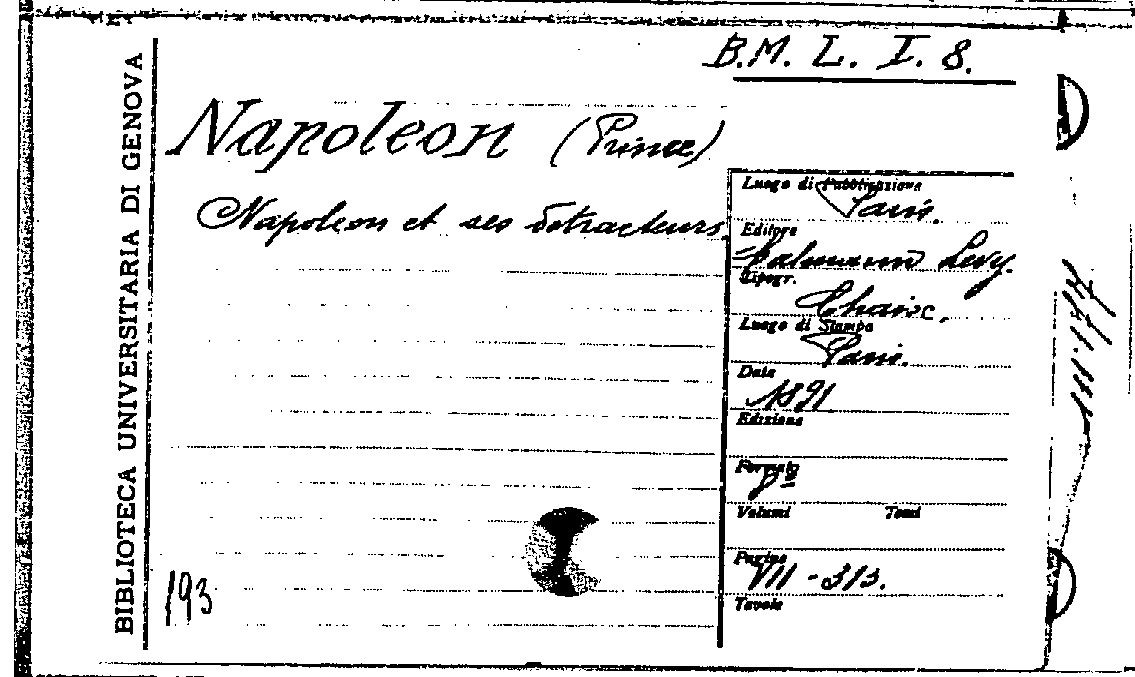 B.M. L. I. 8.
BIBLIOTECA UNIVERSITARIA DI GENOVA
Napoleon (Prince)
Napoleon et ses détracteurs.
Luogo di Pubblicazione
Paris.
Editore
Calmann Levy.
Tipogr.
Chaix.
Luogo di Stampa
Paris.
Data
1891
Edizione
Formato
8º
Volumi Tomi
Pagine
VII - 313.
Tavole
193